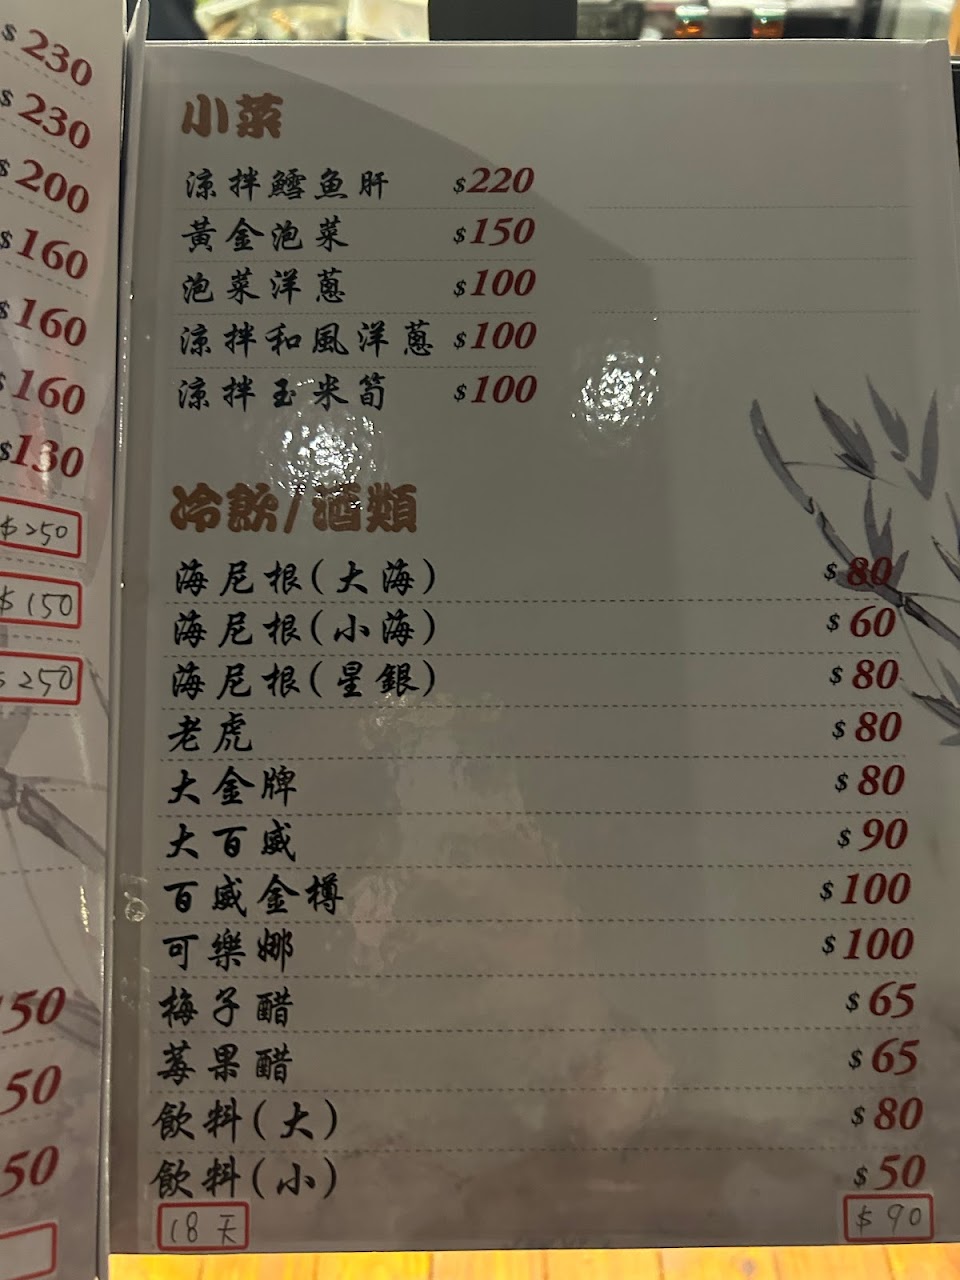 $230
$230
$200
$160
$160
$160
$130
$250
$150
$250
50
50
50
小菜
涼拌鱈魚肝 $220
黃金泡菜 $150
泡菜洋蔥 $100
涼拌和風洋蔥 $100
涼拌玉米筍 $100
冷飲/酒類
海尼根(大海) $80
海尼根(小海) $60
海尼根(星銀) $80
老虎 $80
大金牌 $80
大百威 $90
百威金樽 $100
可樂娜 $100
梅子醋 $65
莓果醋 $65
飲料(大) $80
飲料(小) $50
18天 $90